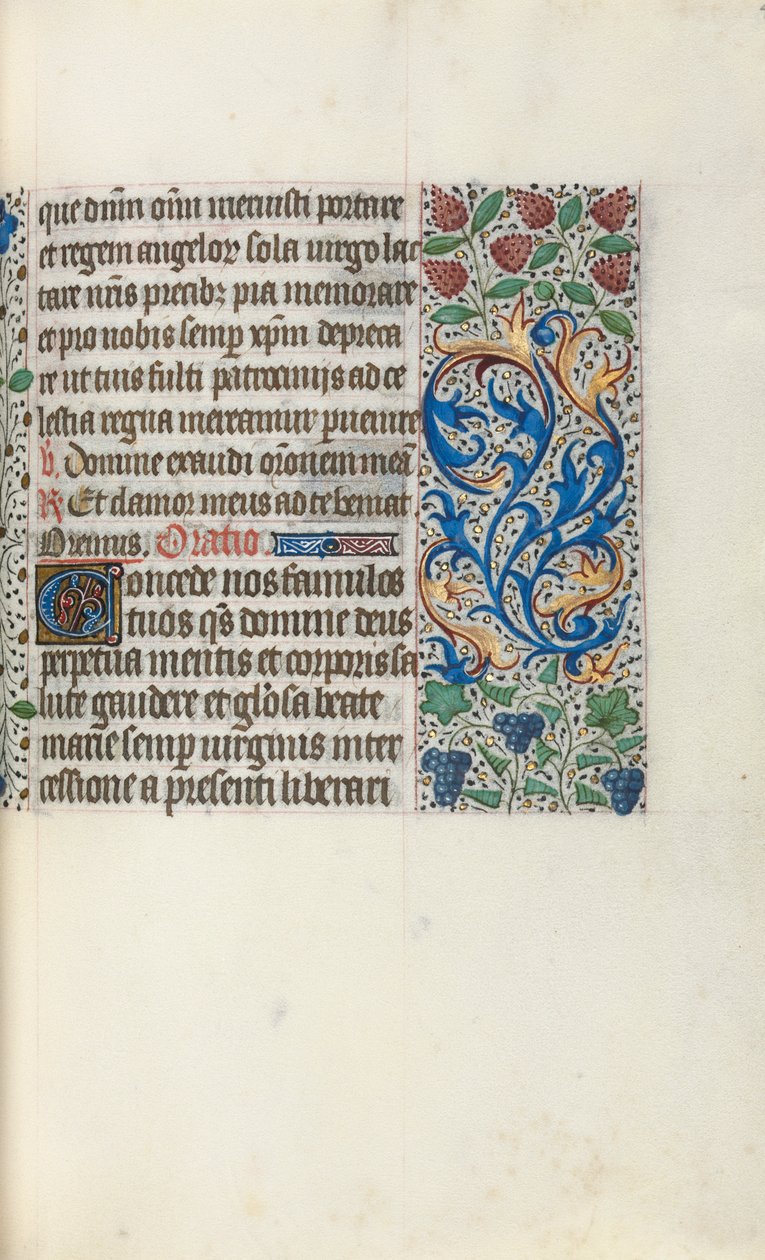 que dñm oïm meruisti portare
et regem angeloꝝ sola uirgo lac
tare nr̃is precibꝫ pia memorare
et pro nobis semꝑ xp̃m depreca
re ut tuis fulti patrocinijs ad ce
lestia regna mereamur ꝑuenire
℣. Domine exaudi or̃onem meã
℟ Et clamor meus ad te veniat.
Oremus. Oratio.
Concede nos famulos
tuos qs̃ domine deus
perpetua mentis et corporis sa
lute gaudere et gl̃osa beate
marie semꝑ uirginis inter
cessione a presenti liberari